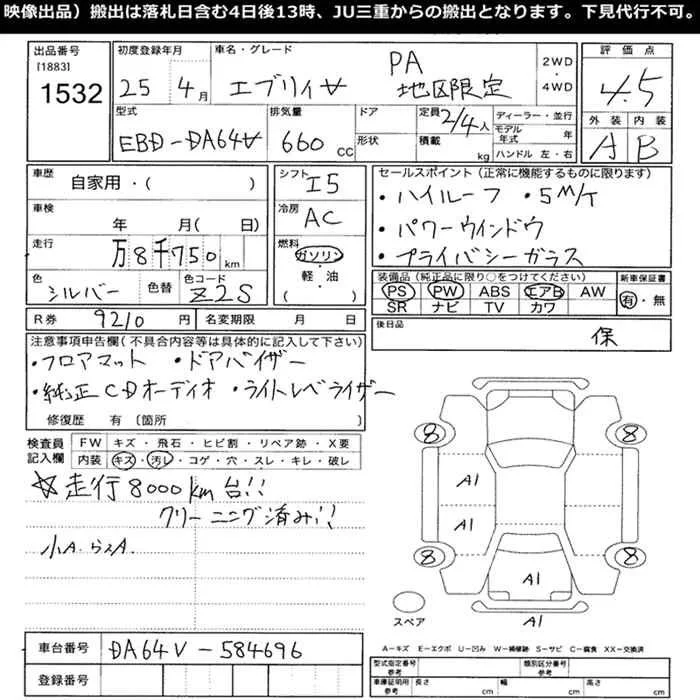 映像出品）搬出は落札日含む4日後13時、JU三重からの搬出となります。下見代行不可。
出品番号 初度登録年月 車名・グレード 評価点
[1883]
1532 25 4月 エブリィV PA 地区限定 2WD・4WD 4.5
型式 排気量 ドア 定員 2/4人 ディーラー・並行 外装 内装
EBD-DA64V 660 CC 形状 積載 kg モデル年式 年 A B
ハンドル 左・右
車歴 自家用・( ) シフト I5 セールスポイント(正常に機能するものに限ります)
・ハイルーフ ・5M/T
車検 年 月( 日) 冷房 AC ・パワーウインドウ
走行 万8千750km 燃料 ガソリン ・プライバシーガラス
軽・油
( )
色 シルバー 色替 色コード Z2S 装備品(純正品に限り○をつけてください) 新車保証書
PS PW ABS エアB AW 有・無
SR ナビ TV カワ
R券 9210円 名変期限 月 日 後日品 保
注意事項申告欄(不具合内容等は具体的に記入して下さい)
・フロアマット ・ドアバイザー
・純正CDオーディオ ・ライトレベライザー
修復歴 有〔箇所
検査員記入欄 FW キズ・飛石・ヒビ割・リペア跡・X要
内装 キズ・汚レ・コゲ・穴・スレ・キレ・破レ
☆走行8000km台!!
クリーニング済み!!
小A.
8 8
A1
A1
8 8
A1
スペア A1
A=キズ E=エクボ U=凹み W=補修跡 S=サビ C=腐食 XX=交換済
車台番号 DA64V-584696
型式指定番号 参考 類別区分番号 参考
登録番号 車庫証明用 参考 長さ cm 幅 cm 高さ cm